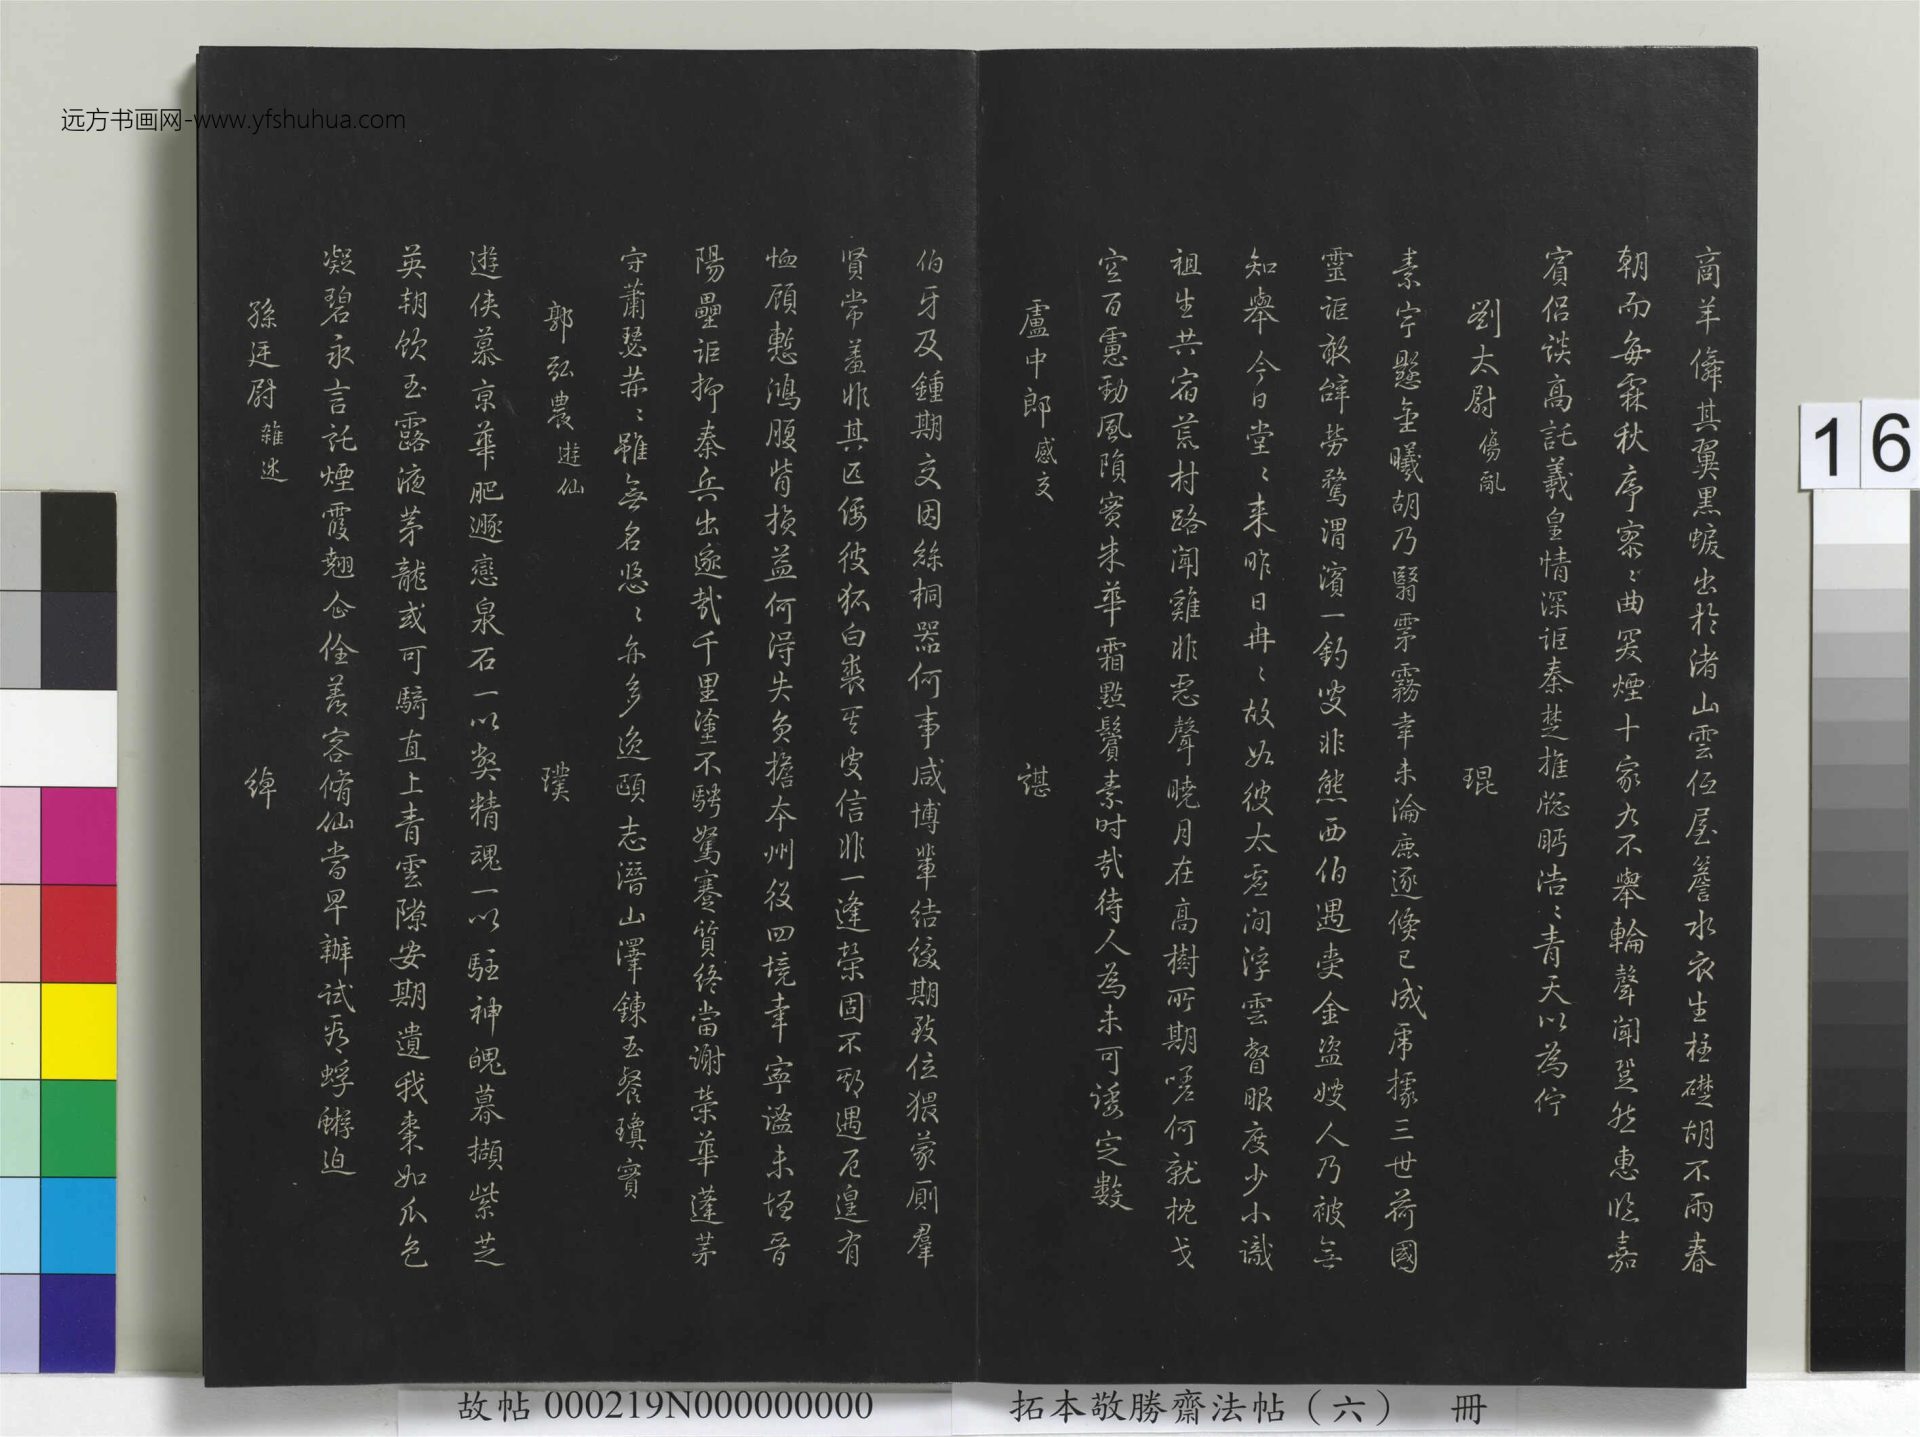 商羊儛其翼黑蜧出於渚山雲伍屋簷水衣生柱礎胡不雨春
朝而每霖秋序寥〻曲突煙十家九不舉輪聲聞跫然惠臨嘉
賓侶談高託羲皇情深詎秦楚推牕眄浩〻青天以為佇
劉太尉傷亂 琨
素宇懸金曦胡乃翳雰霧幸未淪鹿逐倏已成席據三世荷國
靈詎敢辭勞騖渭濱一釣叟非熊西伯遇妻金盜嫂人乃被無
知舉今日堂〻來昨日冉〻故如彼太虛洞浮雲督眼度少小識
祖生共宿荒村路聞雞非惡聲曉月在高樹所期嗟何就枕戈
空百慮動風隕實朱華霜點鬢素時哉待人為未可諉定數
盧中郎感交 諶
伯牙及鍾期交因絲桐器何事咸博輩結綬期致位猥蒙厠羣
賢常羞非其匹倭彼狐白裘叟信非一逢榮固不那遇厄遑有
恤顧慙鴻腹背損益何得失負擔本州役四境幸寧謐未垣晉
陽壘詎抑秦兵出邈哉千里塗不騁駑蹇質終當謝榮華蓬茅
守蕭瑟苦〻雖無名悠〻亦多逸頤志潛山澤鍊玉餐瓊實
郭弘農遊仙 璞
遊俠慕京華肥遯戀泉石一以獘精魂一以駐神魄暮擷紫芝
英朝飲玉露液茅龍或可騎直上青雲隙安期遺我棗如瓜色
凝碧永言託煙霞翹企佺羨客脩仙當早辦試看蜉蝣迫
孫廷尉雜述 綽
远方书画网-www.yfshuhua.com
16
故帖 000219N000000000
拓本敬勝齋法帖（六） 冊